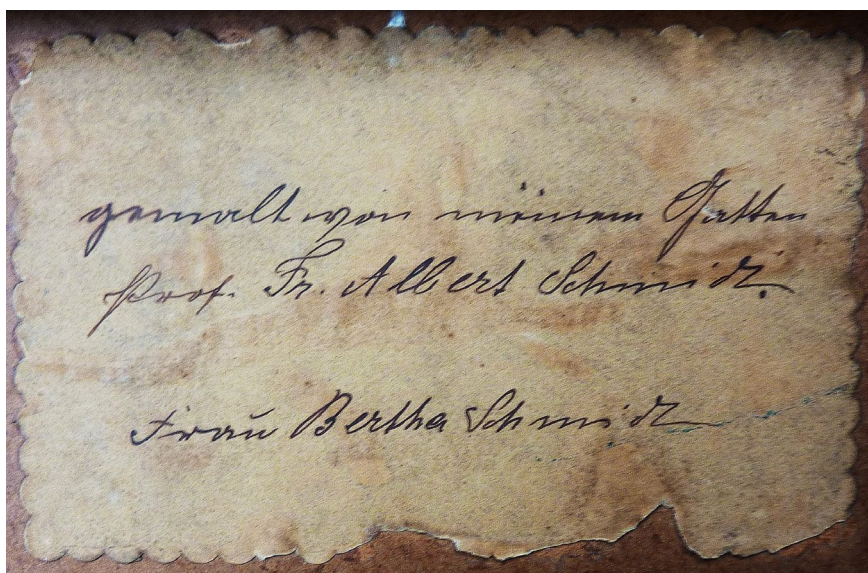 gemalt von meinem Gatten
Prof. Fr. Albert Schmidt.
Frau Bertha Schmidt